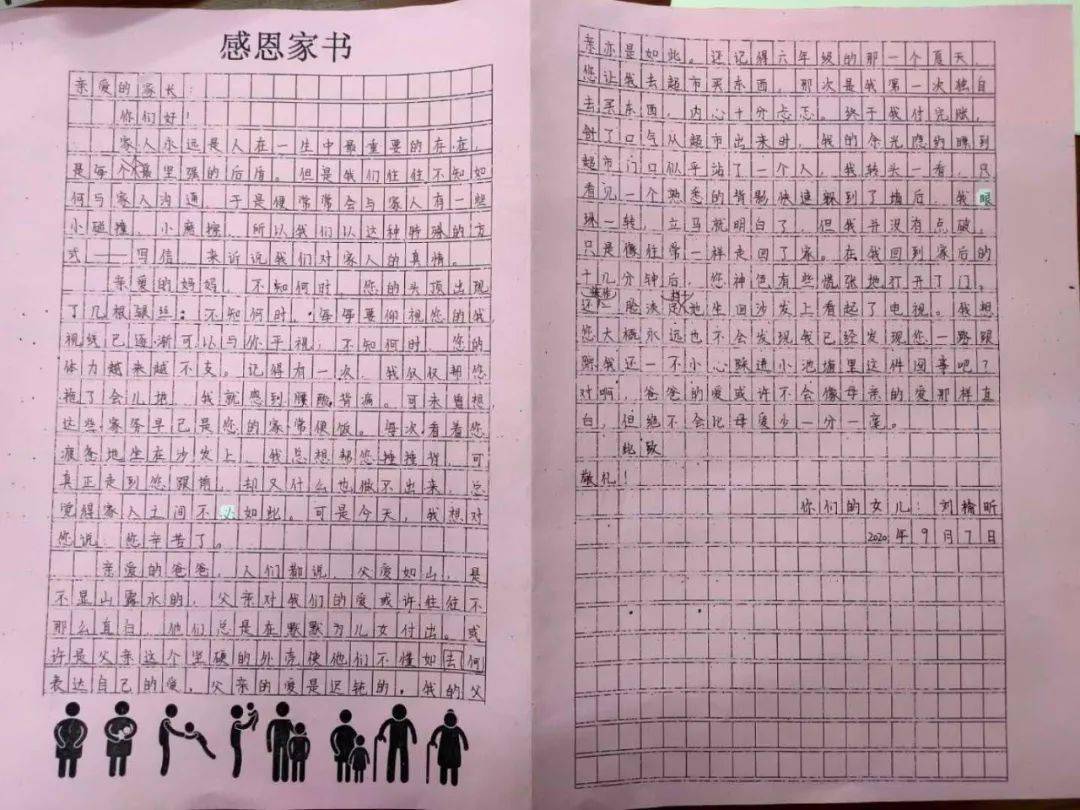 感恩家书
亲爱的家长：
你们好！
家人永远是人在一生中最重要的存在，
是每个人最坚强的后盾。但是我们往往不知如
何与家人沟通，于是便常常会与家人有一些
小碰撞、小摩擦，所以我们以这种特殊的方
式——写信，来诉说我们对家人的真情。
亲爱的妈妈，不知何时，您的头顶出现
了几根银丝；不知何时，每每要仰视您的我
视线已逐渐可以与你平视；不知何时，您的
体力越来越不支。记得有一次，我仅仅帮您
拖了会儿地，我就感到腰酸背痛。可未曾想
这些家务早已是您的家常便饭。每次看着您
疲惫地坐在沙发上，我总想帮您捶捶背，可
真正走到您跟前，却又什么也做不出来，总
觉得家人之间不必如此。可是今天，我想对
您说：您辛苦了。
亲爱的爸爸，人们都说，父爱如山，是
不显山露水的，父亲对我们的爱或许往往不
那么直白，他们总是在默默为儿女付出。或
许是父亲这个坚硬的外壳使他们不懂如去何
表达自己的爱，父亲的爱是迟钝的。我的父
亲亦是如此。还记得六年级的那一个夏天，
您让我去超市买东西，那次是我第一次独自
去买东西，内心十分忐忑。终于我付完账，
舒了口气从超市出来时，我的余光隐约瞟到
超市门口似乎站了一个人，我转头一看，只
看见一个熟悉的背影快速躲到了墙后，我眼
珠一转，立马就明白了，但我并没有点破，
只是像往常一样走回了家。在我回到家后的
十几分钟后，您神色有些慌张地打开了门，
还 脸淡 地坐回沙发上看起了电视。我想
您大概永远也不会发现我已经发现您一路跟
踪我还一不小心踩进小池塘里这件囧事吧？
对啊，爸爸的爱或许不会像母亲的爱那样直
白，但绝不会比母爱少一分一度。
此致
敬礼！
你们的女儿：刘榆昕
2020年9月7日